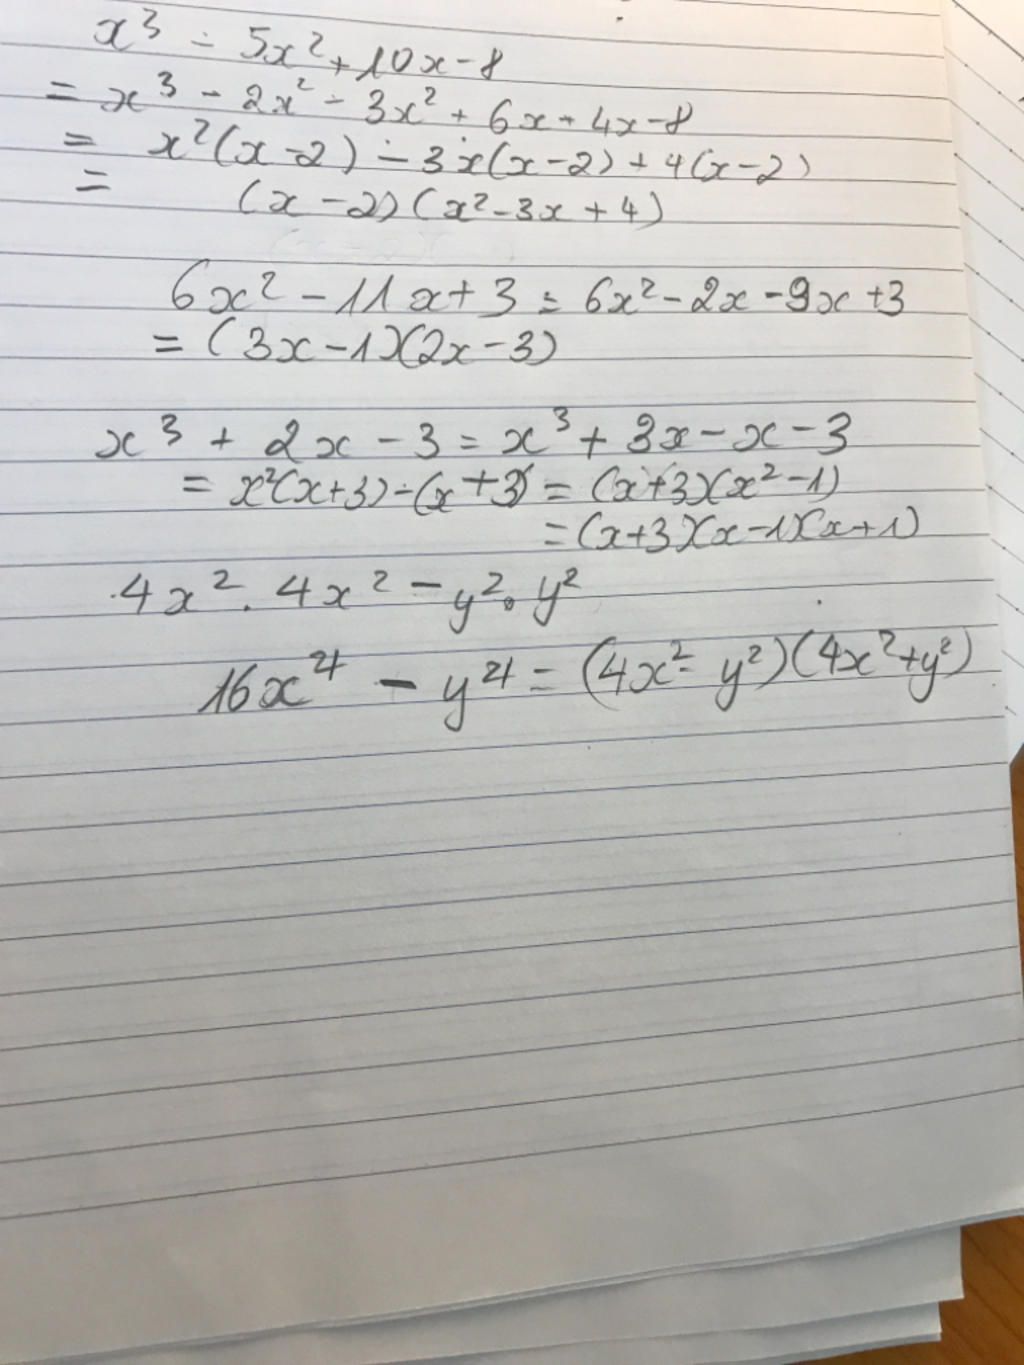 x³ - 5x² + 10x - 8
= x³ - 2x² - 3x² + 6x + 4x - 8
= x²(x - 2) - 3x(x - 2) + 4(x - 2)
= (x - 2)(x² - 3x + 4)
6x² - 11x + 3 = 6x² - 2x - 9x + 3
= (3x - 1)(2x - 3)
x³ + 2x - 3 = x³ + 3x - x - 3
= x²(x + 3) - (x + 3) = (x + 3)(x² - 1)
= (x + 3)(x - 1)(x + 1)
4x² . 4x² - y² . y²
16x⁴ - y⁴ = (4x² - y²)(4x² + y²)